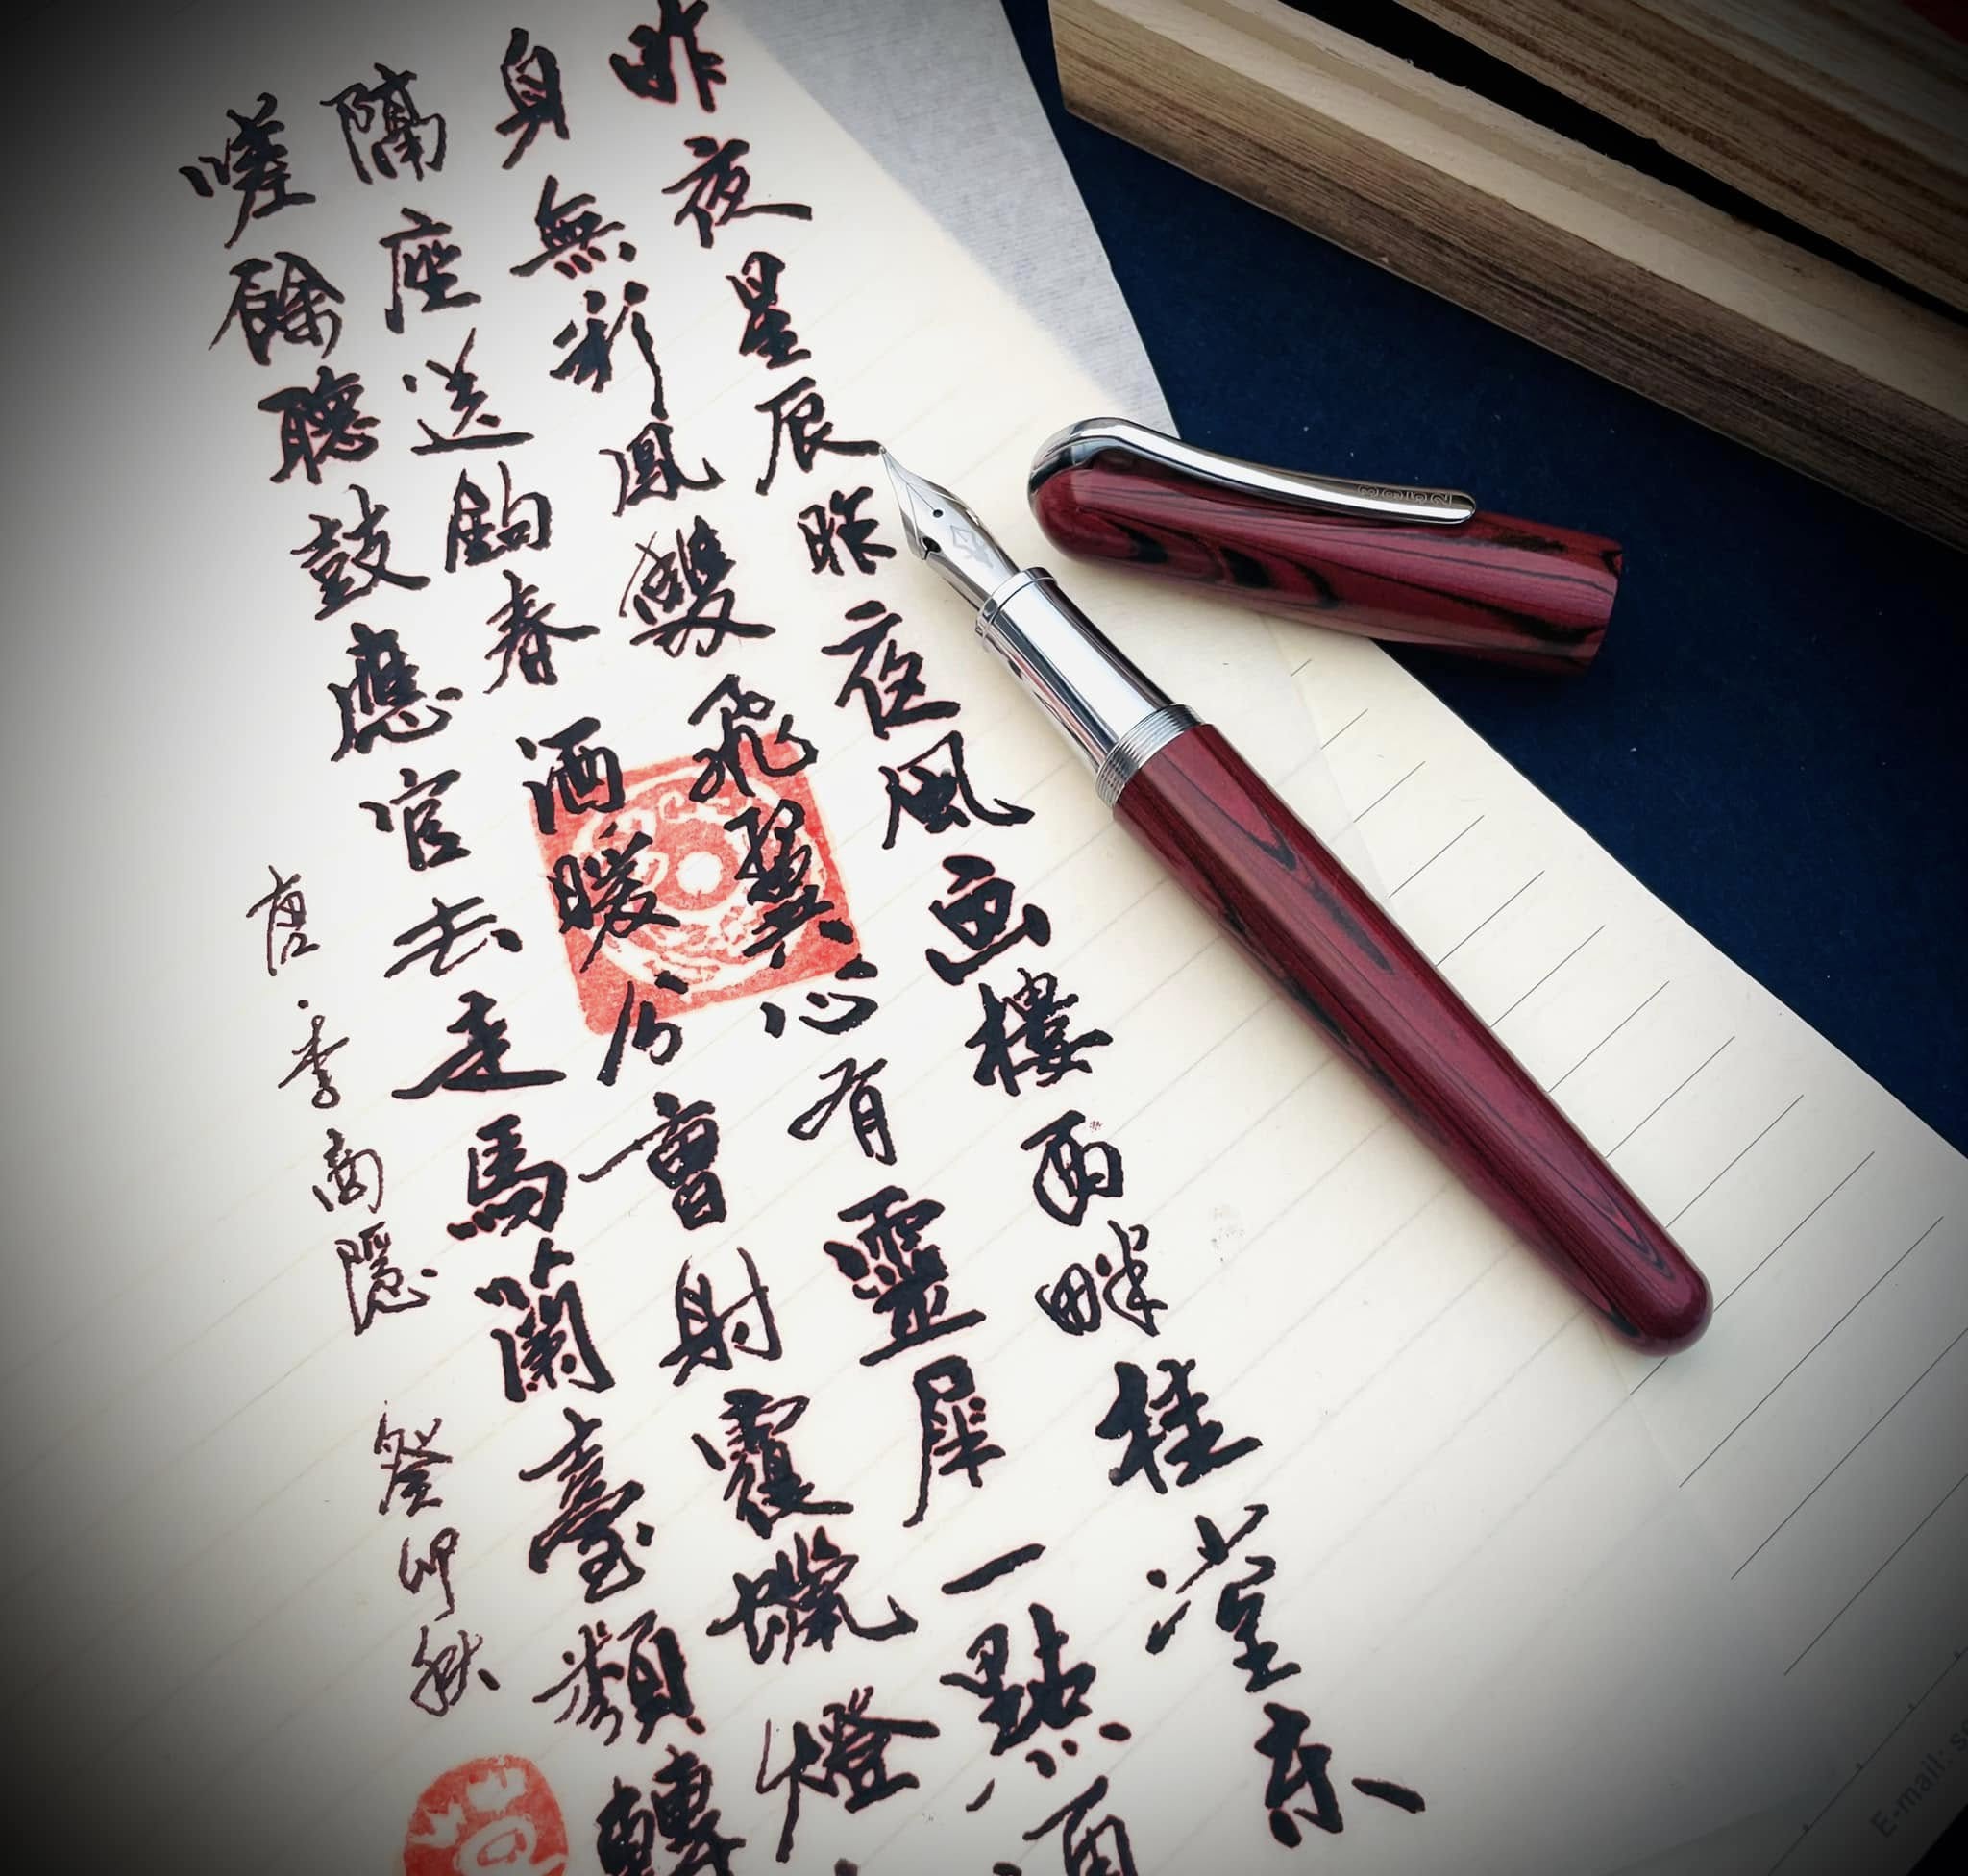 昨夜星辰昨夜風画樓西畔桂堂東
身無彩鳳雙飛翼心有靈犀一點通
隔座送鈎春酒暖分曹射覆蠟燈
嗟餘聽鼓應官去走馬蘭臺類轉
唐·李商隱 癸卯秋
E-mail: